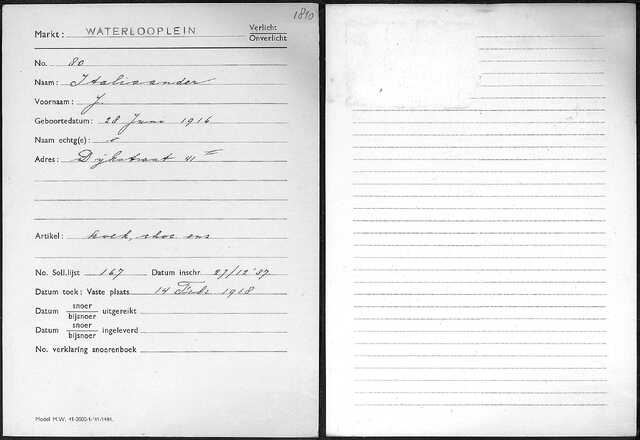 1810
Markt: WATERLOOPLEIN Verlicht
Onverlicht
No. 80
Naam: Italiaander
Voornaam: J.
Geboortedatum: 28 Juni 1916
Naam echtg(e):
Adres: Dijkstraat 41 II
Artikel: koek, choc enz
No. Soll.lijst 167 Datum inschr. 27/12 '37
Datum toek: Vaste plaats 14 Feb. 1918
Datum snoer
bijsnoer uitgereikt
Datum snoer
bijsnoer ingeleverd
No. verklaring snoerenboek
Model M.W.